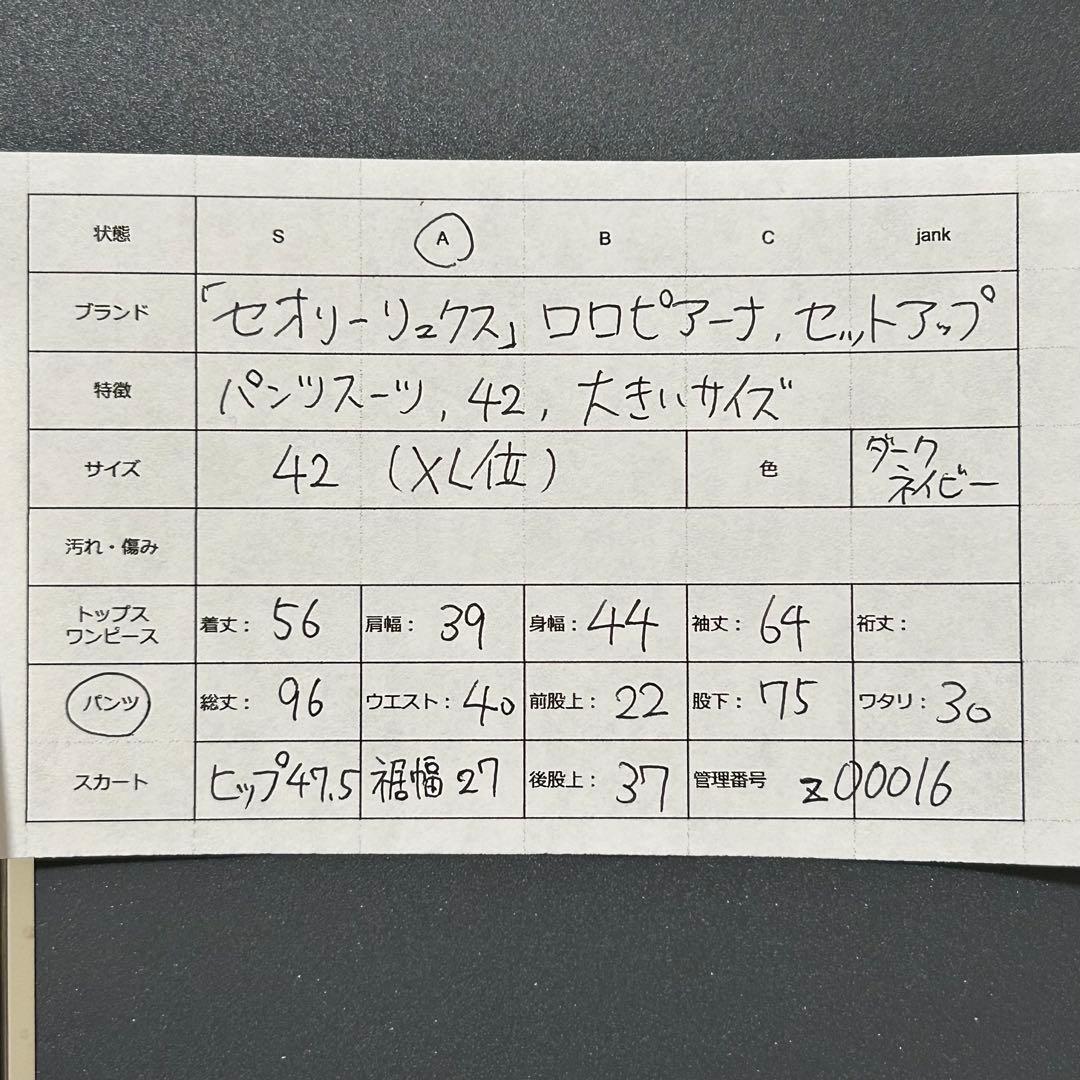 状態 S A B C jank
ブランド 「セオリーリュクス」ロロピアーナ, セットアップ
特徴 パンツスーツ, 42, 大きいサイズ
サイズ 42 (XL位) 色 ダーク
ネイビー
汚れ・傷み
トップス
ワンピース 着丈: 56 肩幅: 39 身幅: 44 袖丈: 64 裄丈:
パンツ 総丈: 96 ウエスト: 40 前股上: 22 股下: 75 ワタリ: 30
スカート ヒップ47.5 裾幅 27 後股上: 37 管理番号 z00016